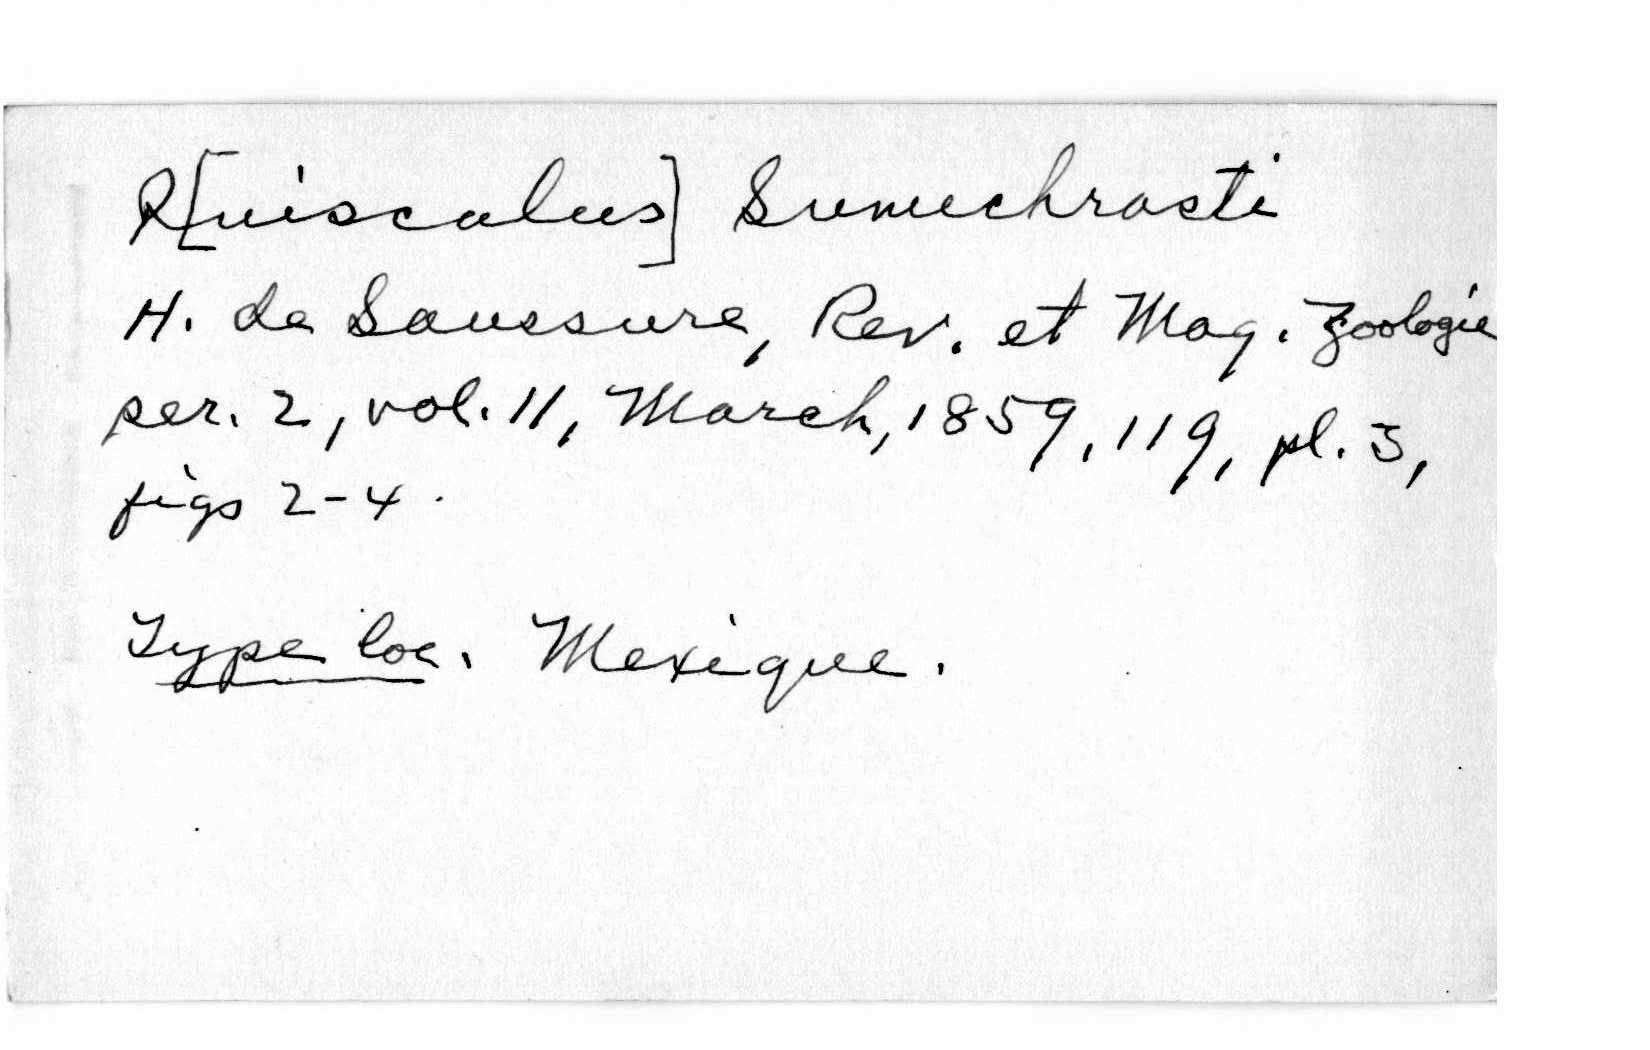 Q[uiscalus] Sumichrasti
H. de Saussure, Rev. et Mag. Zoologie
ser. 2, vol. 11, March, 1859, 119, pl. 3,
figs 2-4.
Type loc. Mexique.